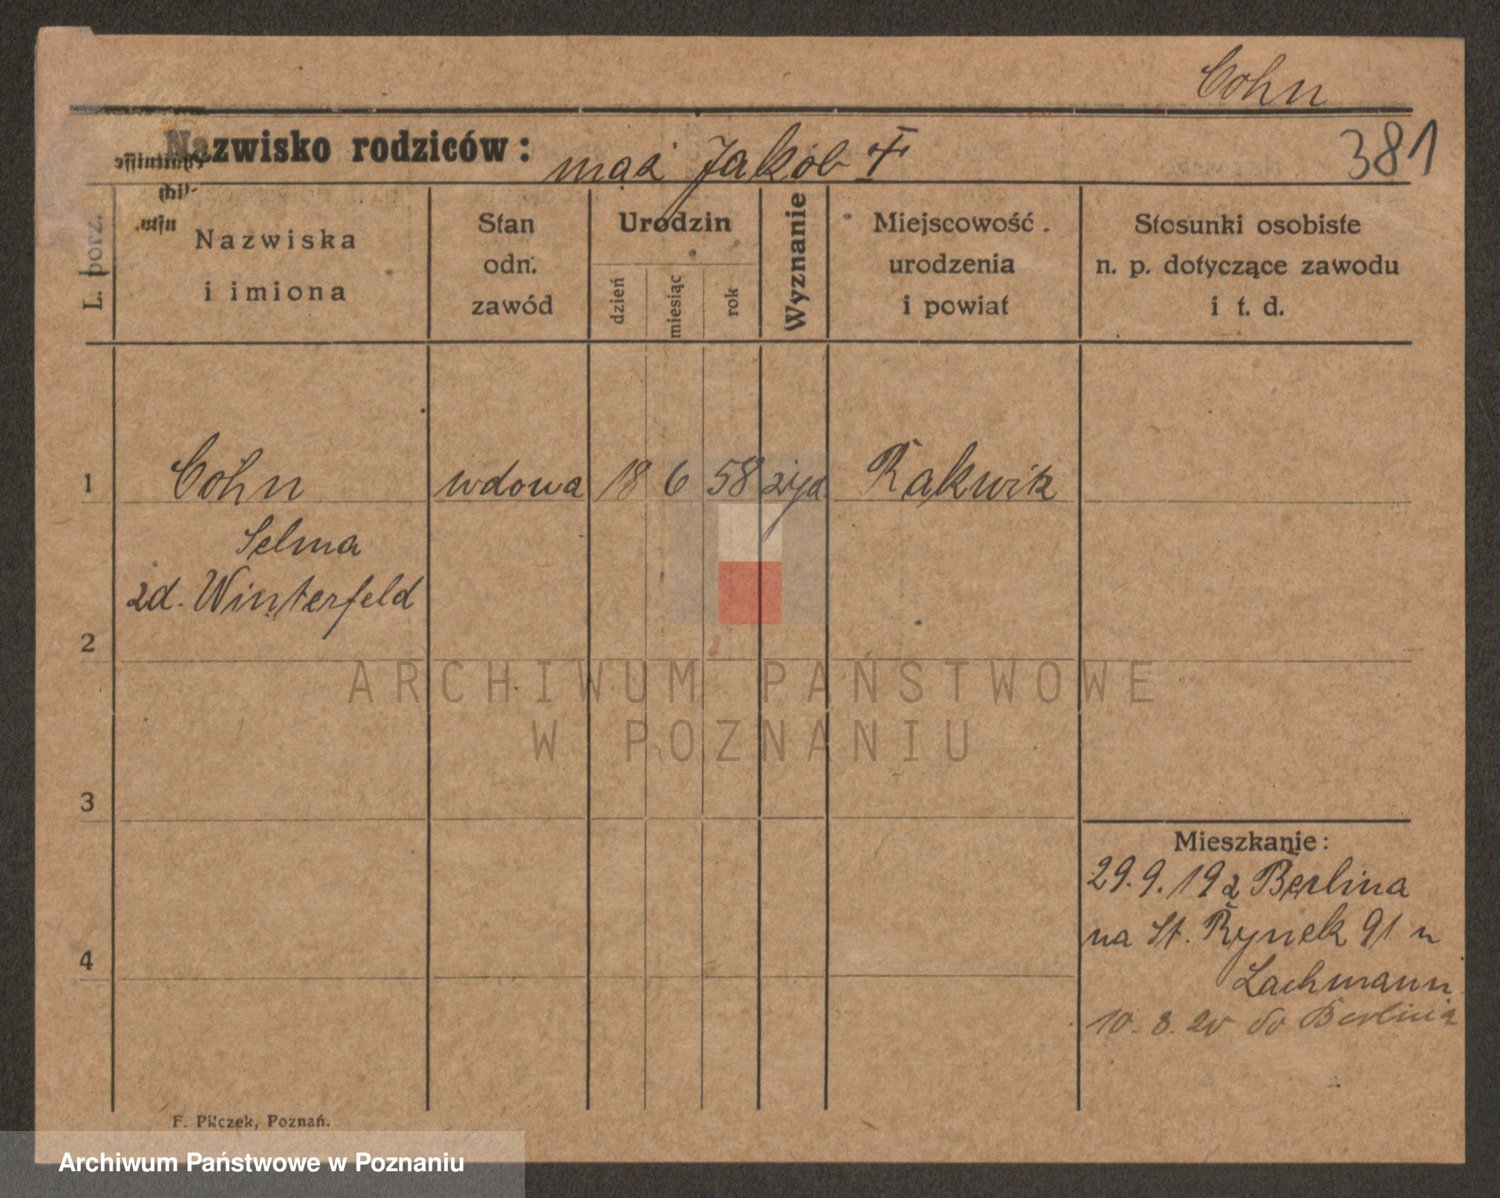 Cohn
Nazwisko rodziców: mąż Jakób †
381
L. porz.
Nazwiska
i imiona
Stan
odn.
zawód
Urodzin
dzień
miesiąc
rok
Wyznanie
Miejscowość
urodzenia
i powiat
Stosunki osobiste
n. p. dotyczące zawodu
i t. d.
1 Cohn wdowa 18 6 58 żyd. Rakwitz
Selma
zd. Winterfeld
2
ARCHIWUM PAŃSTWOWE
W POZNANIU
3
Mieszkanie:
29.9.19 z Berlina
na St. Rynek 91 u
Lachmann
10.8.20 do Berlina
4
F. Pilczek, Poznań.
Archiwum Państwowe w Poznaniu